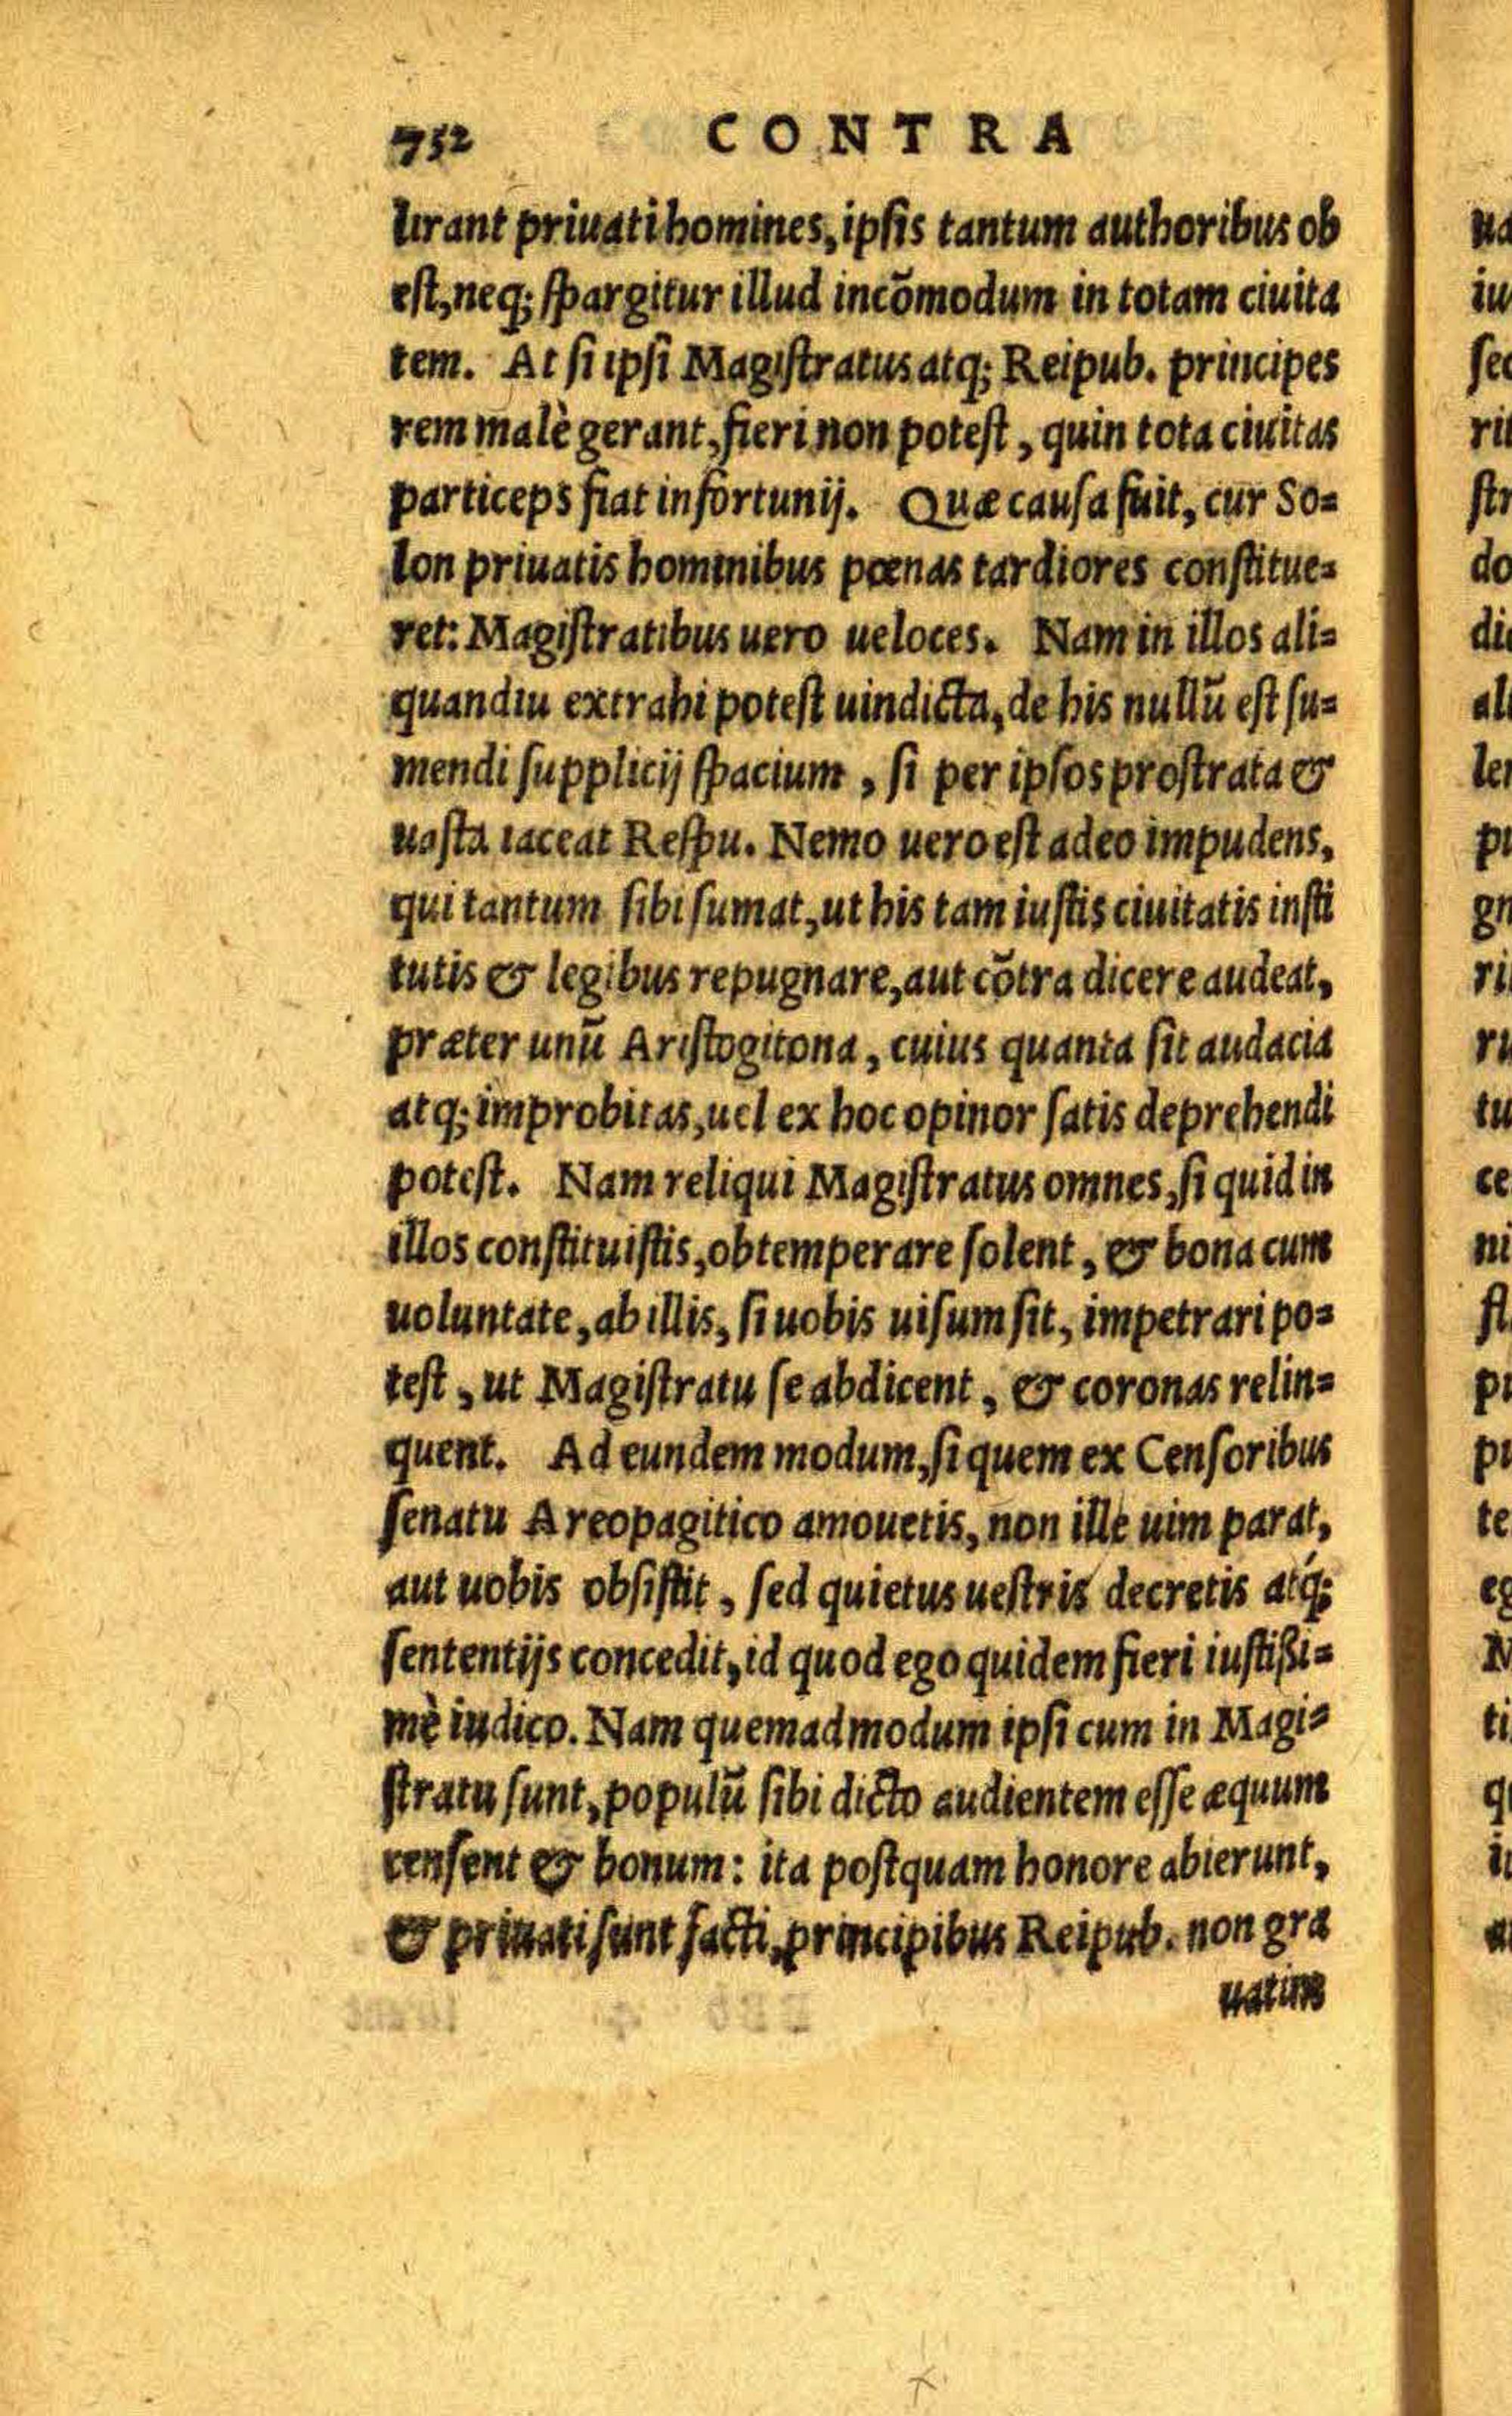 752 CONTRA
lirant priuati homines, ipsis tantum authoribus ob
est, neq; spargitur illud incõmodum in totam ciuita
tem. At si ipsi Magistratus atq; Reipub. principes
rem malè gerant, fieri non potest, quin tota ciuitas
particeps fiat infortunij. Quæ causa fuit, cur So=
lon priuatis hominibus pœnas tardiores constitue=
ret: Magistratibus uero ueloces. Nam in illos ali=
quandiu extrahi potest uindicta, de his nullũ est su=
mendi supplicij spacium, si per ipsos prostrata &
uasta iaceat Respu. Nemo uero est adeo impudens,
qui tantum sibi sumat, ut his tam iustis ciuitatis insti
tutis & legibus repugnare, aut cõtra dicere audeat,
præter unũ Aristogitona, cuius quanta sit audacia
atq; improbitas, uel ex hoc opinor satis deprehendi
potest. Nam reliqui Magistratus omnes, si quid in
illos constituistis, obtemperare solent, & bona cum
uoluntate, ab illis, si uobis uisum sit, impetrari po=
test, ut Magistratu se abdicent, & coronas relin=
quent. Ad eundem modum, si quem ex Censoribus
senatu Areopagitico amouetis, non ille uim parat,
aut uobis obsistit, sed quietus uestris decretis atq́;
sententijs concedit, id quod ego quidem fieri iustißi=
mè iudico. Nam quemadmodum ipsi cum in Magi=
stratu sunt, populũ sibi dicto audientem esse æquum
censent & bonum: ita postquam honore abierunt,
& priuati sunt facti, principibus Reipub. non gra
uatim